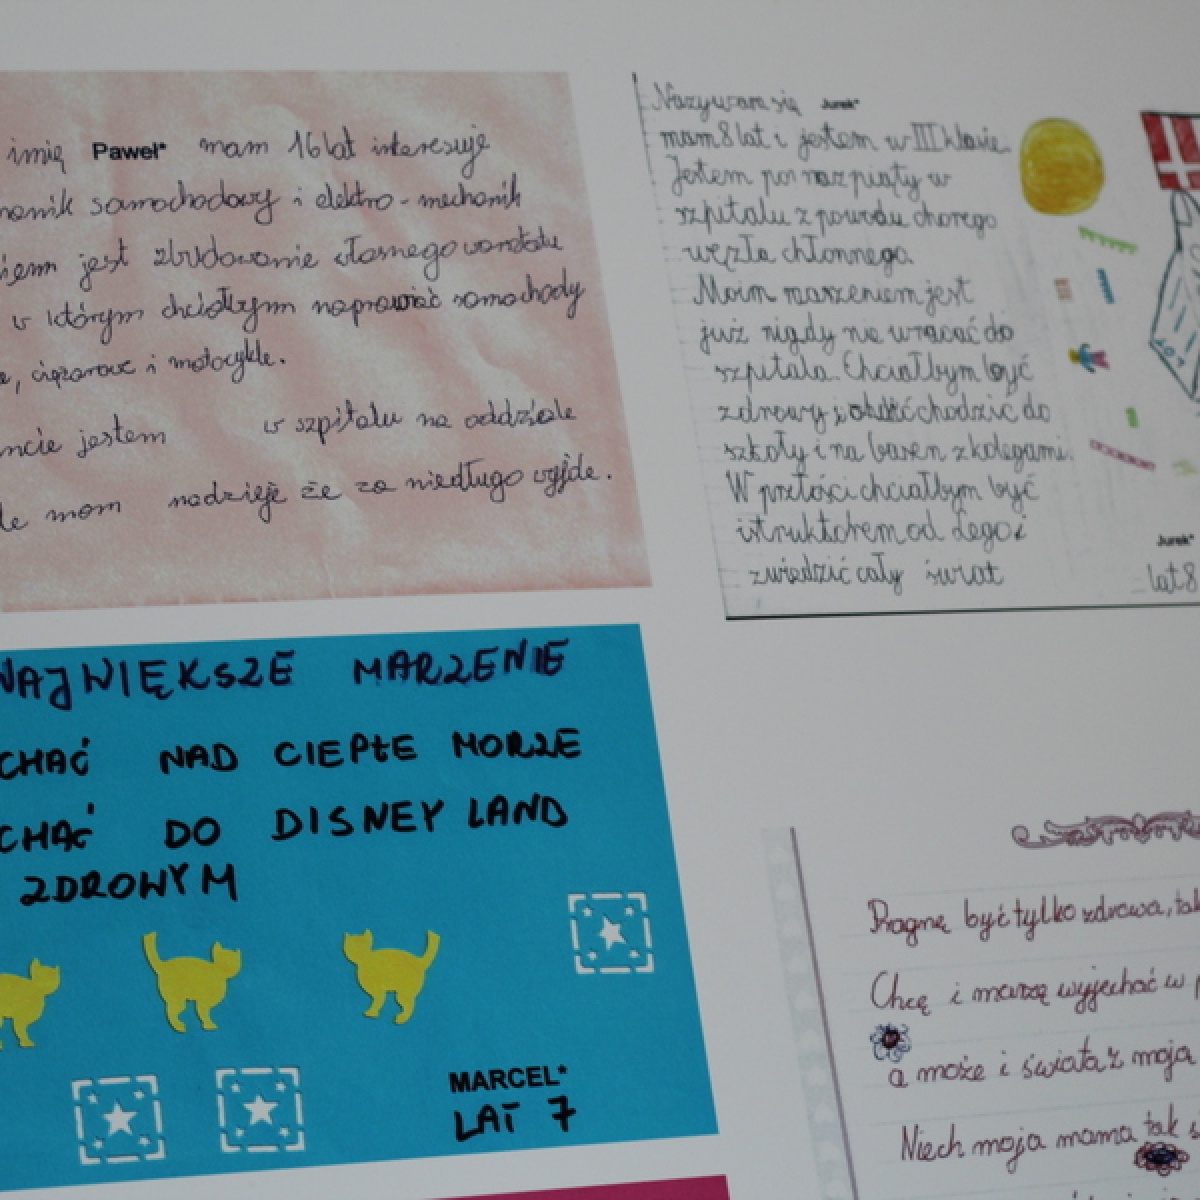 imię Paweł* mam 16 lat interesuje
samochodowy i elektro-mechanik
jest zbudowanie własnego warsztatu
w którym chciałbym naprawiać samochody
ciężarowe i motocykle.
jestem w szpitalu na oddziale
mam nadzieję że za niedługo wyjde.
Nazywam się Jurek*
mam 8 lat i jestem w III klasie.
Jestem po raz piąty w
szpitalu z powodu chorego
węzła chłonnego.
Moim marzeniem jest
już nigdy nie wracać do
szpitala. Chciałbym być
zdrowy i chodzić do
szkoły i na basen z kolegami.
W przłości chciałbym być
istruktorem od Lego i
zwiedzić cały świat
Jurek*
lat 8
NAJWIĘKSZE MARZENIE
CHAĆ NAD CIEPŁE MORZE
CHAĆ DO DISNEY LAND
ZDROWYM
MARCEL*
LAT 7
Pragnę być tylko zdrowa, tak
Chcę i marzę wyjechać w
a może i świata z moja
Niech moja mama tak